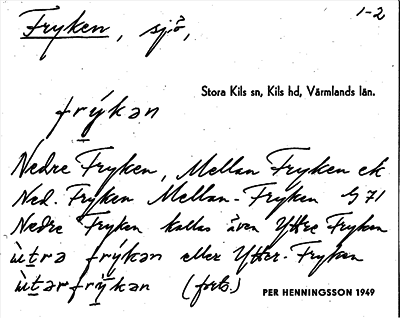 1-2
Fryken, sjö,
Stora Kils sn, Kils hd, Värmlands län.
frýkən
Nedre Fryken, Mellan Fryken ek
Ned. Fryken Mellan-Fryken G 71
Nedre Fryken kallas även Yttre Fryken
ùtrə frýkən eller Ytter-Fryken
ùtərfrýkən (forts.)
PER HENNINGSSON 1949